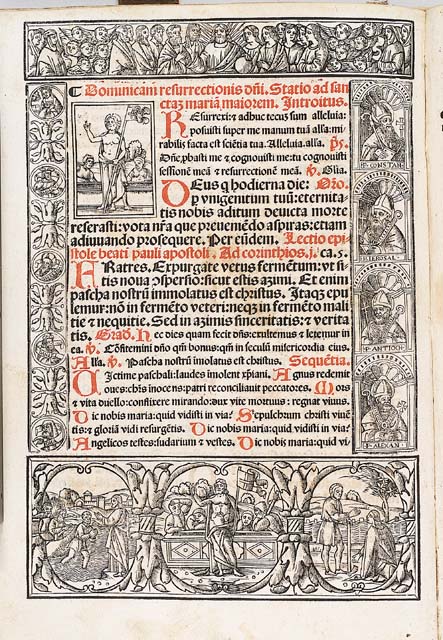 ¶ Dominicam resurrectionis dñi. Statio ad san
ctaz mariã maiorem. Introitus.
REsurrexi: ⁊ adhuc tecuz sum alleluia:
posuisti super me manum tuã alľa: mi
rabilis facta est sciẽtia tua. Alleluia. alľa. p̃s.
Dñe pbasti me ⁊ cognouisti me: tu cognouisti
sessionẽ meã ⁊ resurrectionẽ meã. ℣. Gľia.
DEus q hodierna die: Oro.
p vnigenitum tuũ: eternita-
tis nobis aditum deuicta morte
reserasti: vota nr̃a que preueniẽdo aspiras: etiam
adiuuando prosequere. Per eũdem. Lectio epi
stole beati pauli apostoli. Ad corinthios. j. ca. 5.
FRatres. Expurgate vetus fermẽtum: vt si-
tis noua cõspersio: sicut estis azimi. Et enim
pascha nostrũ immolatus est christus. Itaqz epu
lemur: nõ in fermẽto veteri: neqz in fermẽto mali
tie ⁊ nequitie. Sed in azimis sinceritatis: ⁊ verita
tis. Grad. Hec dies quam fecit dñs: exultemus ⁊ letemur in
ea. ℣. Cõfitemini dño qm̃ bonus: qm̃ in seculũ misericordia eius.
Alľa. ℣. Pascha nostrũ imolatus est christus. Sequẽtia.
VIctime paschali: laudes imolent xp̃iani. Agnus redemit
oues: chr̃s inocẽns: patri reconciliauit peccatores. Mors
⁊ vita duello: conflixere mirando: dux vite mortuus: regnat viuus.
Dic nobis maria: quid vidisti in via? Sepulchrum christi viuẽ
tis: ⁊ gloriã vidi resurgẽtis. Dic nobis maria: quid vidisti in via?
Angelicos testes: sudarium ⁊ vestes. Dic nobis maria: quid vi-
CONSTAN
HIEROSAL
ANTIOCH
ALEXAN